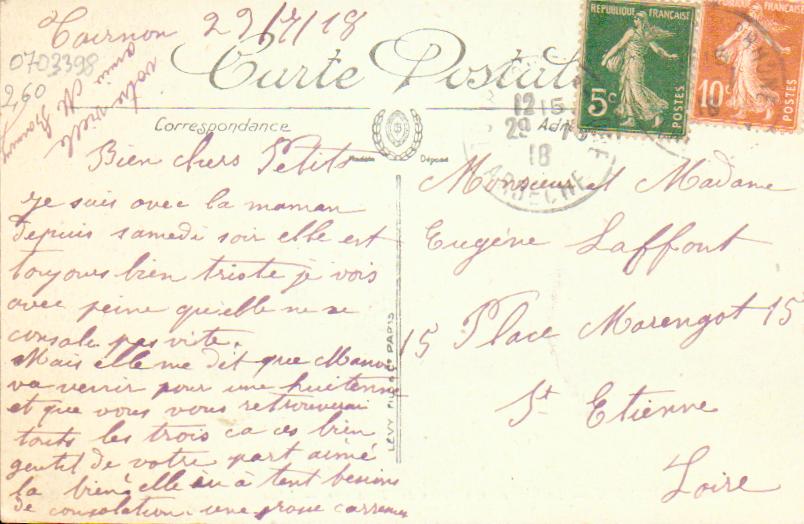 Tournon 29/7/18
Carte Postale
0703398
2,60
votre vieille
amie M
Correspondance
Adresse
Modèle Déposé
RÉPUBLIQUE FRANÇAISE
5c
POSTES
RÉPUBLIQUE FRANÇAISE
10c
POSTES
12 15
29 -7
18
ARDECHE
Bien chers Petits
je suis avec la maman
depuis samedi soir elle est
toujours bien triste je vois
avec peine qu'elle ne se
console pas vite.
Mais elle me dit que
va venir pour une huitenne
et que vous vous retrouverai
touts les trois ca ces bien
gentil de votre part aimé
la bien elle en à tent besoins
de consolation une grosse
LEVY FILS & Cie PARIS
Monsieur et Madame
Eugéne Laffont
15 Place Marengot 15
St Etienne
Loire